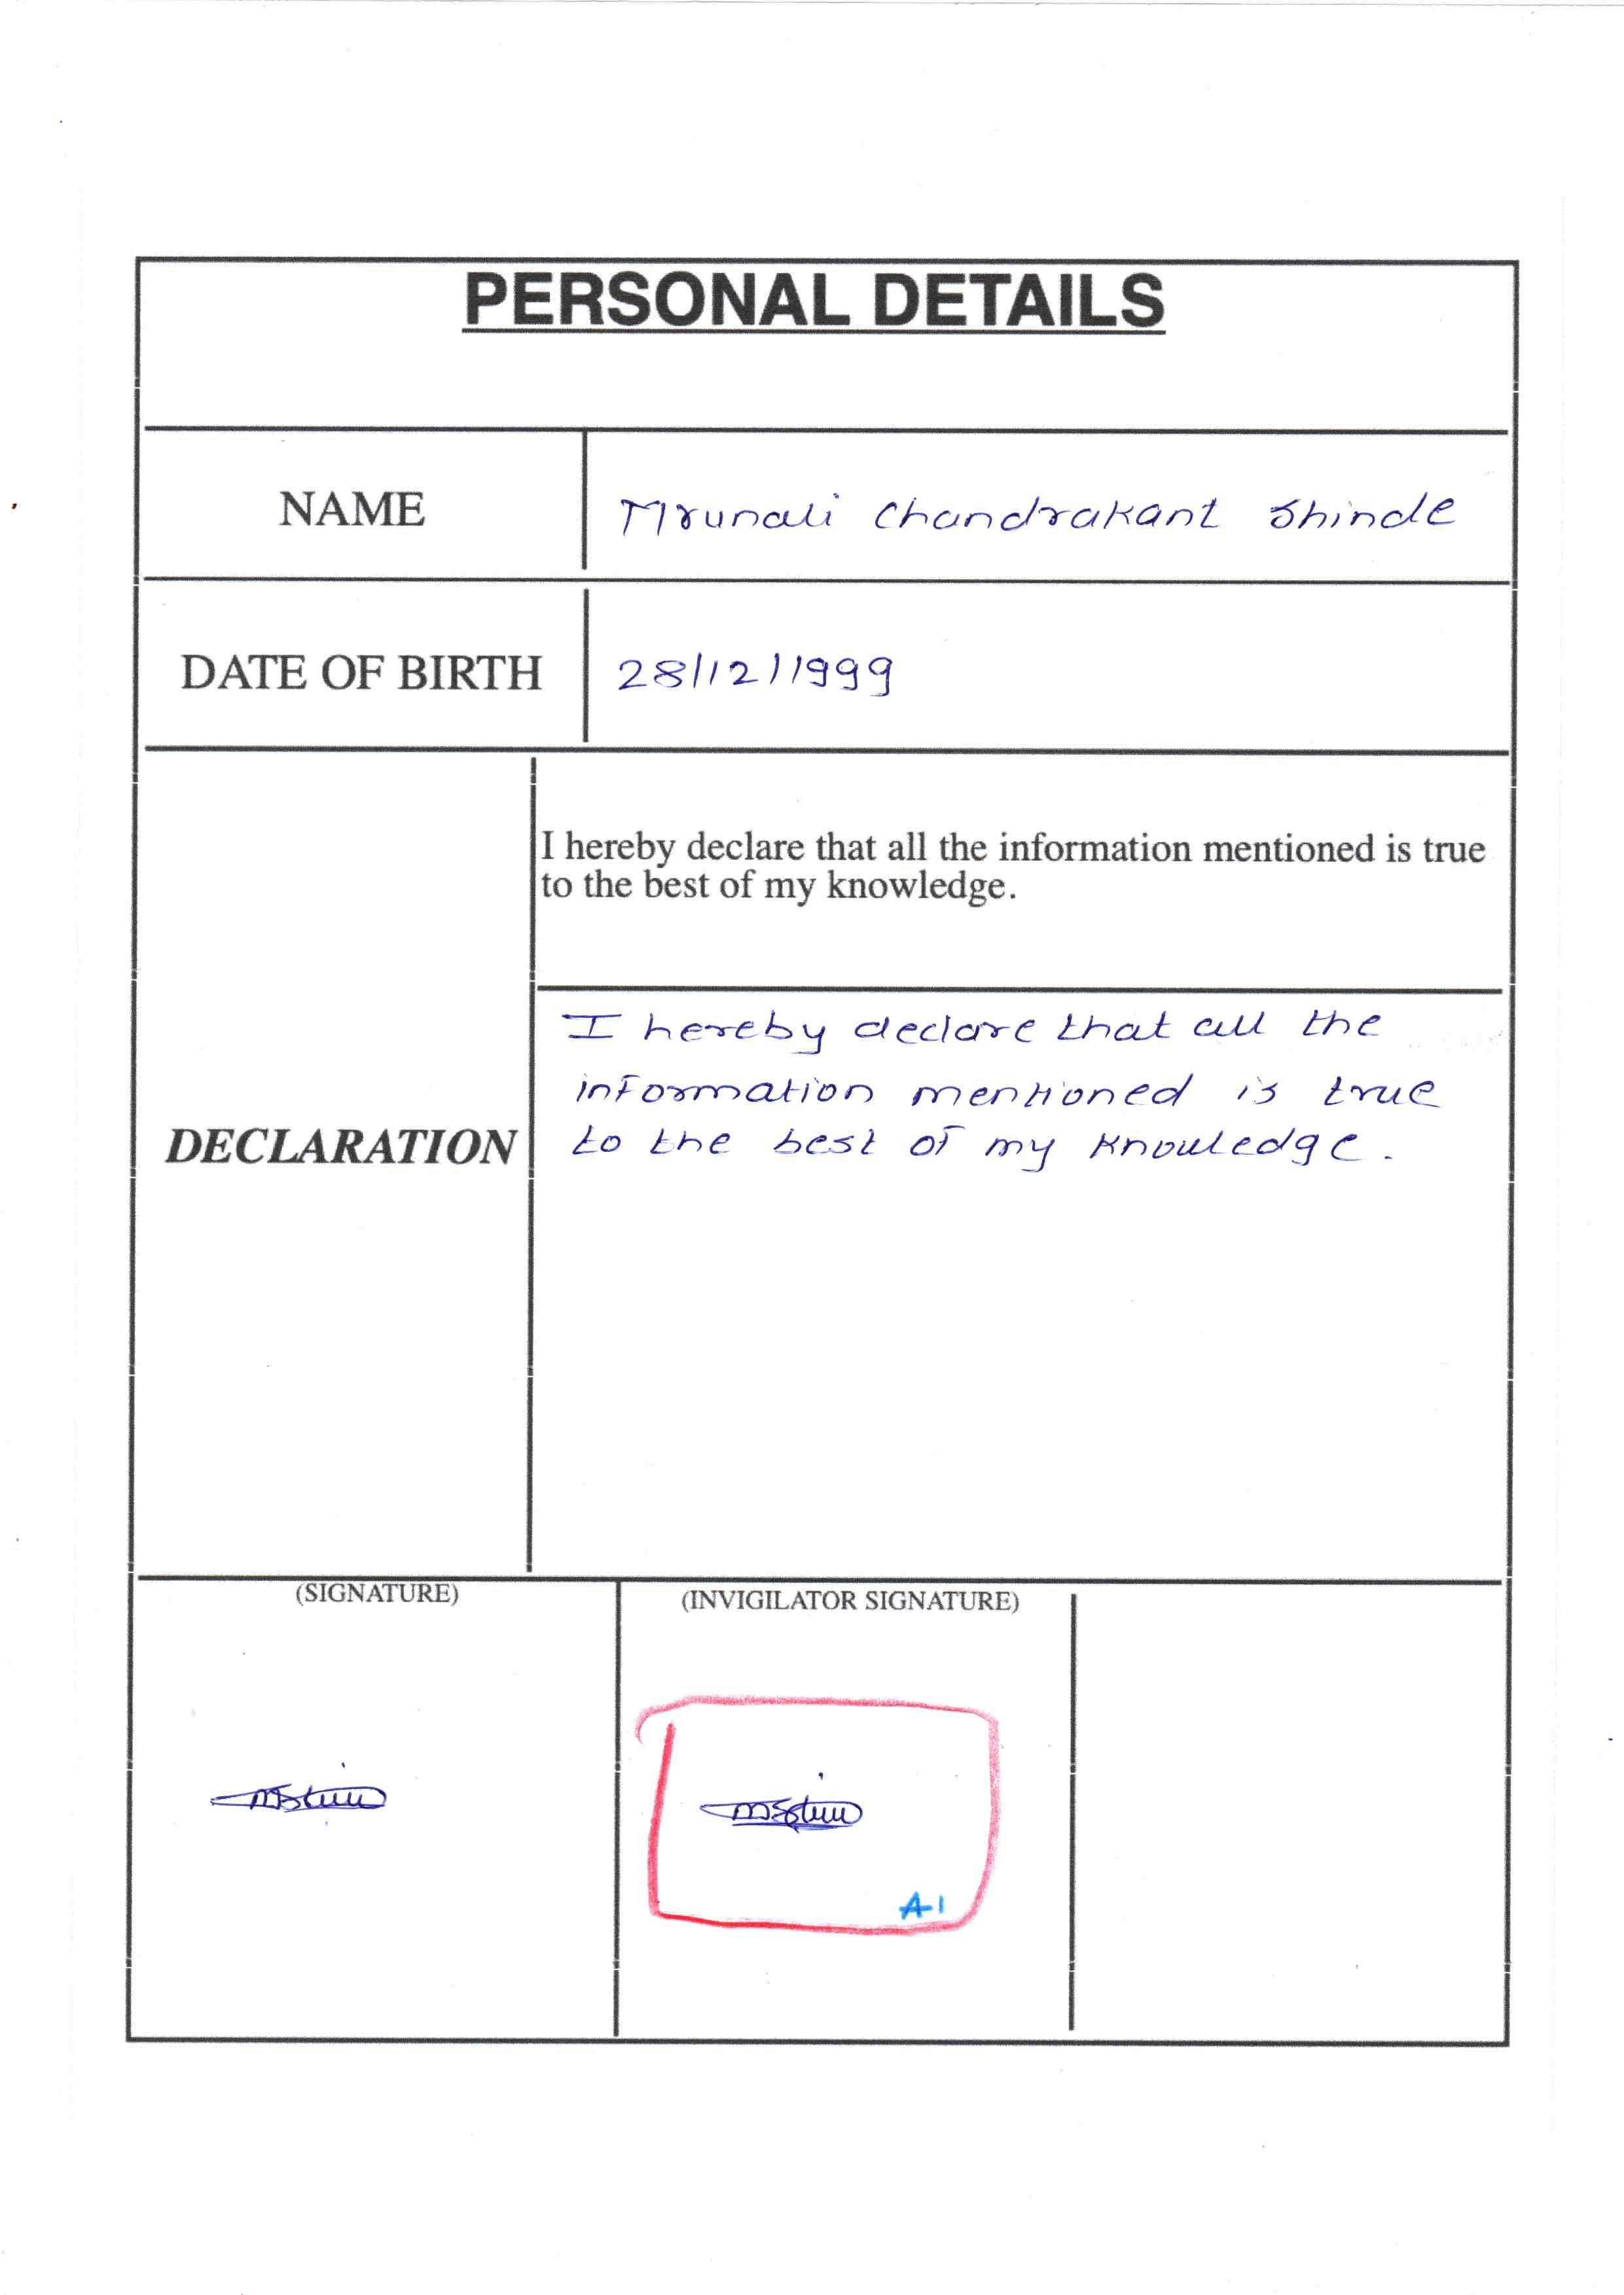 PERSONAL DETAILS
NAME
Mrunali Chandrakant Shinde
DATE OF BIRTH
28/12/1999
I hereby declare that all the information mentioned is true
to the best of my knowledge.
DECLARATION
I hereby declare that all the
information mentioned is true
to the best of my knowledge.
(SIGNATURE)
(INVIGILATOR SIGNATURE)
A-1